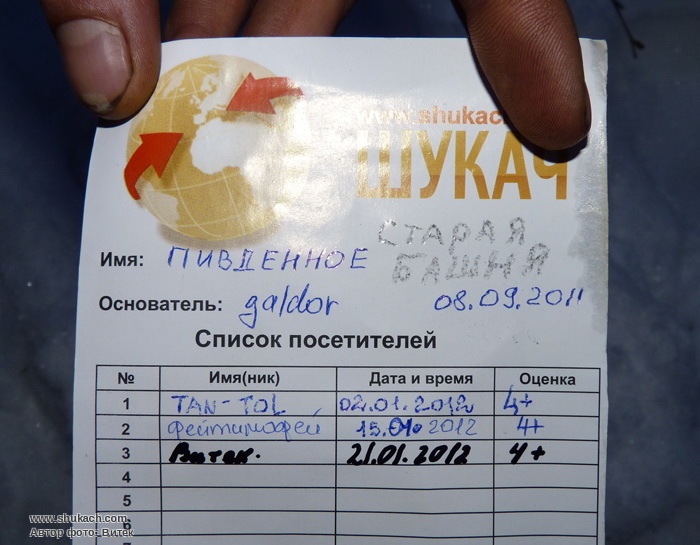 www.shukach
ШУКАЧ
СТАРАЯ
Имя: ПИВДЕННОЕ БАШНЯ
Основатель: galdor 08.09.2011
Список посетителей
№ Имя(ник) Дата и время Оценка
1 TAN-TOL 02.01.2012 4+
2 фейтимофей 15.01.2012 4+
3 Витек. 21.01.2012 4+
4
5
6
www.shukach.com
Автор фото- Витек